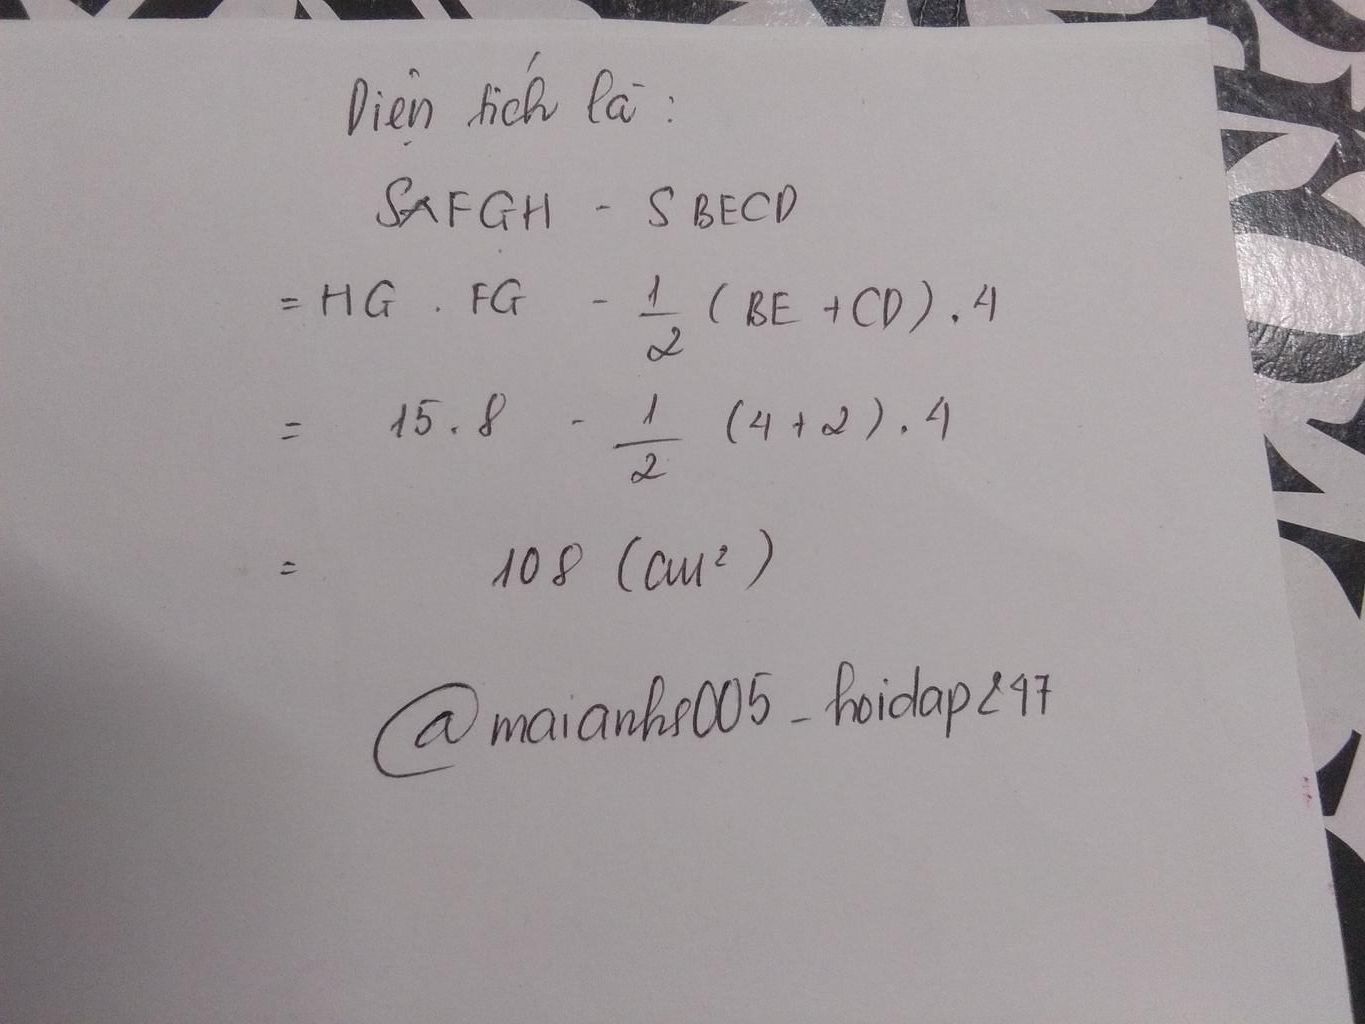 Diện tích là :
SAFGH - SBECD
= HG . FG - 1/2 (BE + CD) . 4
= 15 . 8 - 1/2 (4 + 2) . 4
= 108 (cm²)
@maianhs005_hoidap247